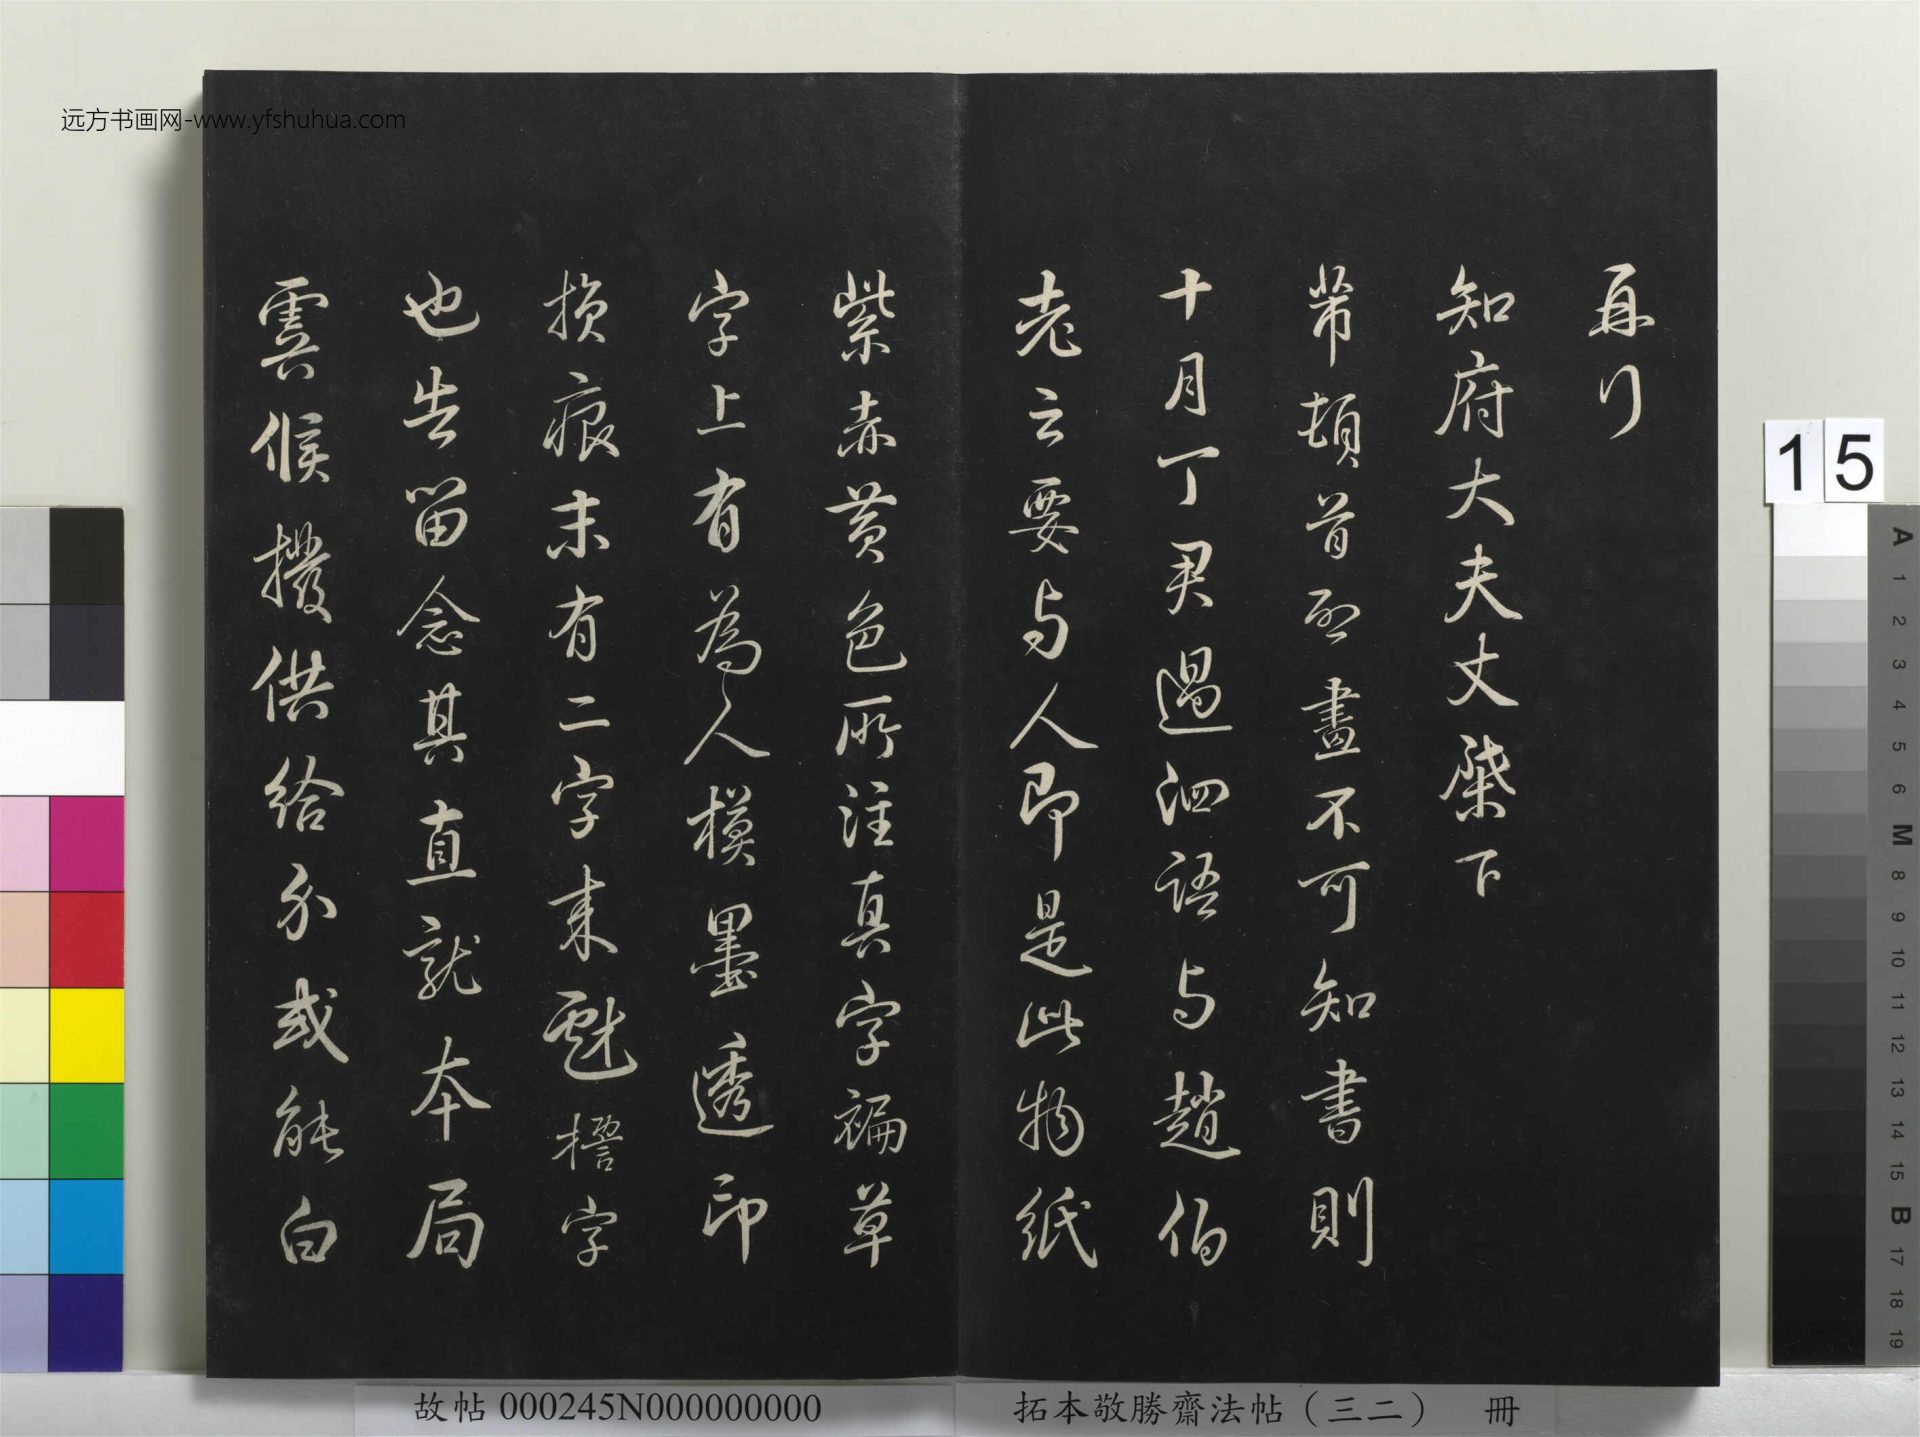 再行
知府大夫丈棐下
芾頓首所畫不可知書則
十月丁君過泗語与趙伯
老云要与人即是此物紙
紫赤黄色所注真字褊草
字上有為人模墨透印
損痕末有二字来戲字
也告留念其直就本局
雲候撥供給分或能白
远方书画网-www.yfshuhua.com
15
A
1
2
3
4
5
6
M
8
9
10
11
12
13
14
15
B
17
18
19
故帖 000245N000000000
拓本敬勝齋法帖（三二） 冊